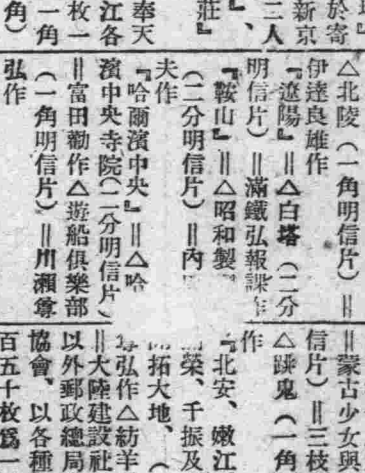 於寄
新京
三人
』、
莊』
奉天
江各
枚一
一角
角）
△北陵（一角明信片）＝
伊達良雄作
『遼陽』＝△白塔（二分
明信片）＝滿鐵弘報課作
『鞍山』＝△昭和製
（二分明信片）＝內
夫作
『哈爾濱中央』＝△哈
濱中央寺院（二分明信片）
＝富田勸作△遊船俱樂部
（一角明信片）＝川瀨尊
弘作
＝蒙古少女與
信片）＝三枝
△跳鬼（一角
作
『北安、嫩江
榮、千振及
拓大地、（
尊弘作△紡羊
＝大陸建設社
以外郵政總局
協會、以各種
百五十枚爲一